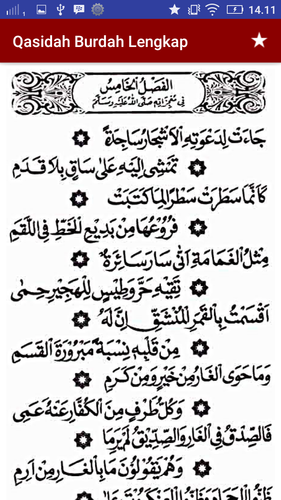 14.11
Qasidah Burdah Lengkap
الفصل الخامس
في معجزاته صلى الله عليه وسلم
جَاءَتْ لِدَعْوَتِهِ الْأَشْجَارُ سَاجِدَةً
تَمْشِي إِلَيْهِ عَلَى سَاقٍ بِلَا قَدَمِ
كَأَنَّمَا سَطَرَتْ سَطْرًا لِمَا كَتَبَتْ
فُرُوعُهَا مِنْ بَدِيعِ الْخَطِّ فِي اللَّقَمِ
مِثْلُ الْغَمَامَةِ أَنَّى سَارَ سَائِرَةً
تَقِيهِ حَرَّ وَطِيسٍ لِلْهَجِيرِ حَمِي
أَقْسَمْتُ بِالْقَمَرِ الْمُنْشَقِّ إِنَّ لَهُ
مِنْ قَلْبِهِ نِسْبَةً مَبْرُورَةَ الْقَسَمِ
وَمَا حَوَى الْغَارُ مِنْ خَيْرٍ وَمِنْ كَرَمِ
وَكُلُّ طَرْفٍ مِنَ الْكُفَّارِ عَنْهُ عَمِي
فَالصِّدْقُ فِي الْغَارِ وَالصِّدِّيقُ لَمْ يَرِمَا
وَهُمْ يَقُولُونَ مَا بِالْغَارِ مِنْ أَرِمِ